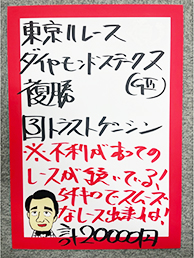 東京11レース
ダイヤモンドステークス
(GⅢ)
複勝
③トラストケンシン
※不利があっての
レースが続いている!
終わってスムーズ
なレース出来れば!
20000円